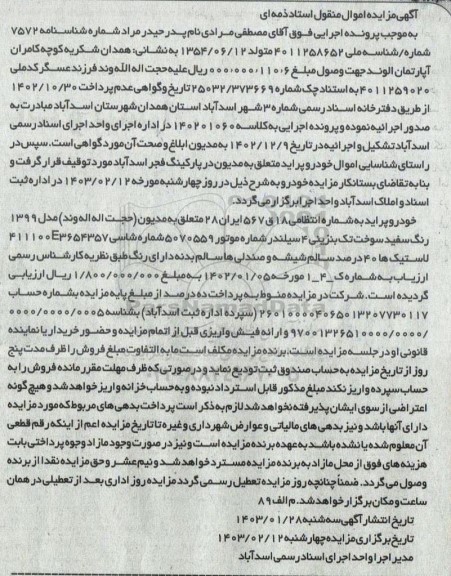 آگهی مزایده اموال منقول اسناد ذمه ای
به موجب پرونده اجرایی فوق آقای مصطفی مرادی نام پدر حیدر مراد شماره شناسنامه ۷۵۷۲
شماره/شناسه ملی ۴۰۱۱۲۵۸۶۵۲ متولد ۱۳۵۴/۰۶/۱۲ به نشانی: همدان شکریه کوچه کامران
آپارتمان الوند جهت وصول مبلغ ۱۱۰،۶۰۰،۰۰۰ ریال علیه حجت اله اله وند فرزند عسگر کدملی
۴۰۱۱۲۵۹۰۲۰ به استناد چک شماره ۲۵۰۳۲/۳۷۳۶۶۹ تاریخ و گواهی عدم پرداخت ۱۴۰۲/۱۰/۳۰
از طریق دفترخانه اسناد رسمی شماره ۳ شهر اسدآباد استان همدان شهرستان اسدآباد مبادرت به
صدور اجرائیه نموده و پرونده اجرایی به کلاسه ۱۴۰۲۰۱۰۶۰ در اداره اجرای واحد اجرای اسناد رسمی
اسدآباد تشکیل و اجرائیه در تاریخ ۱۴۰۲/۱۲/۹ به مدیون ابلاغ و صحت آن مورد گواهی است. سپس در
راستای شناسایی اموال خودرو پراید متعلق به مدیون در پارکینگ فجر اسدآباد مورد توقیف قرار گرفت و
بنا به تقاضای بستانکار مزایده خودرو به شرح ذیل در روز چهارشنبه مورخه ۱۴۰۳/۰۲/۱۲ در اداره ثبت
اسناد و املاک اسدآباد واحد اجرا برگزار می گردد.
خودرو پراید به شماره انتظامی ۱۸ق۵۶۷ ایران ۲۸ متعلق به مدیون (حجت اله اله وند) مدل ۱۳۹۹
رنگ سفید سوخت تک بنزینی ۴ سیلندر شماره موتور ۵۰۷۰۵۵۹ شماره شاسی ۴۱۱۱۰۰E۳۶۵۴۳۵۷
لاستیک ها ۴۰ درصد سالم شیشه و صندلی ها سالم بدنه دارای رنگ طبق نظریه کارشناس رسمی
ارزیاب به شماره ک_۴_۱ مورخه ۱۴۰۲/۰۱/۰۵ به مبلغ ۱/۸۰۰/۰۰۰/۰۰۰ ریال ارزیابی
گردیده است. شرکت در مزایده منوط به پرداخت ده درصد از مبلغ پایه مزایده به شماره حساب
۲۶۰۱۰۰۰۰۴۰۶۵۰۱۳۲۰۷۷۳۰۱۱۷ (سپرده اداره ثبت اسدآباد) بشناسه ۰۰۰۰/۰۰۰۰/۰۰۰۵
۹۷۰۰۱۳۲۶۵۱۰۰۰۰/۰۰۰۰/ و ارائه فیش واریزی قبل از اتمام مزایده و حضور خریدار یا نماینده
قانونی او در جلسه مزایده است. برنده مزایده مکلف است ما به التفاوت مبلغ فروش را ظرف مدت پنج
روز از تاریخ مزایده به حساب صندوق ثبت تودیع نماید و در صورتی که ظرف مهلت مقرر مانده فروش را به
حساب سپرده واریز نکند مبلغ مذکور قابل استرداد نبوده و به حساب خزانه واریز خواهد شد و هیچ گونه
اعتراضی از سوی ایشان پذیرفته نخواهد شد لازم به ذکر است پرداخت بدهی های مربوط که مورد مزایده
دارای آنها باشد و نیز بدهی های مالیاتی و عوارض شهرداری و غیره تا تاریخ مزایده اعم از اینکه رقم قطعی
آن معلوم شده یا نشده باشد به عهده برنده مزایده است و نیز در صورت وجود مازاد وجوه پرداختی بابت
هزینه های فوق از محل مازاد به برنده مزایده مسترد خواهد شد و نیم عشر و حق مزایده نقدا از برنده
وصول می گردد. ضمناً چنانچه روز مزایده تعطیل رسمی گردد مزایده روز اداری بعد از تعطیلی در همان
ساعت و مکان برگزار خواهد شد. م الف ۸۹
تاریخ انتشار آگهی سه شنبه ۱۴۰۳/۰۱/۲۸
تاریخ برگزاری مزایده چهارشنبه ۱۴۰۳/۰۲/۱۲
مدیر اجرا واحد اجرای اسناد رسمی اسدآباد